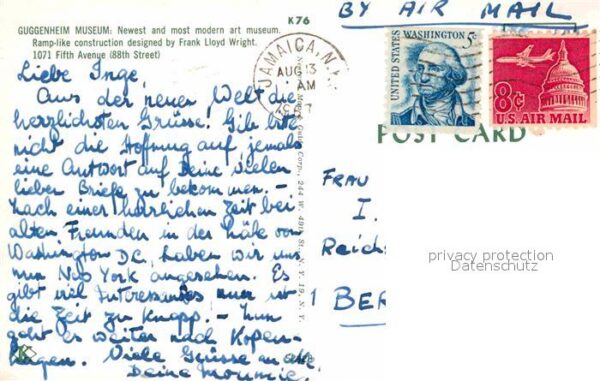 K76
GUGGENHEIM MUSEUM: Newest and most modern art museum.
Ramp-like construction designed by Frank Lloyd Wright.
1071 Fifth Avenue (88th Street)
BY AIR MAIL
JAMAICA, N.Y.
AUG 13
AM
UNITED STATES
WASHINGTON 5c
8c
U.S. AIR MAIL
POST CARD
Liebe Inge,
Aus der neuen Welt die
herzlichsten Grüsse! Gib bitte
nicht die Hoffnung auf jemals
eine Antwort auf Deine vielen
lieber Briefe zu bekommen. –
Nach einer herrlichen Zeit bei
alten Freunden in der Nähe von
Washington DC, haben wir uns
nun New York angesehen. Es
gibt viel Interessantes nur ist
die Zeit zu knapp. – Nun
geht es weiter nach Kopen-
hagen. Viele Grüsse an alle
Deine
244 W. 49th St., N.Y. 19, N.Y.
FRAU
I.
Reichs
1 BER
privacy protection
Datenschutz